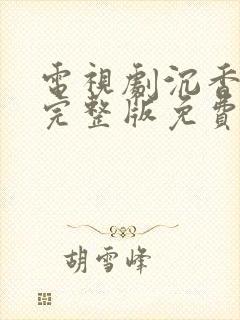 電視劇沉香
完整版免費
胡雪峰